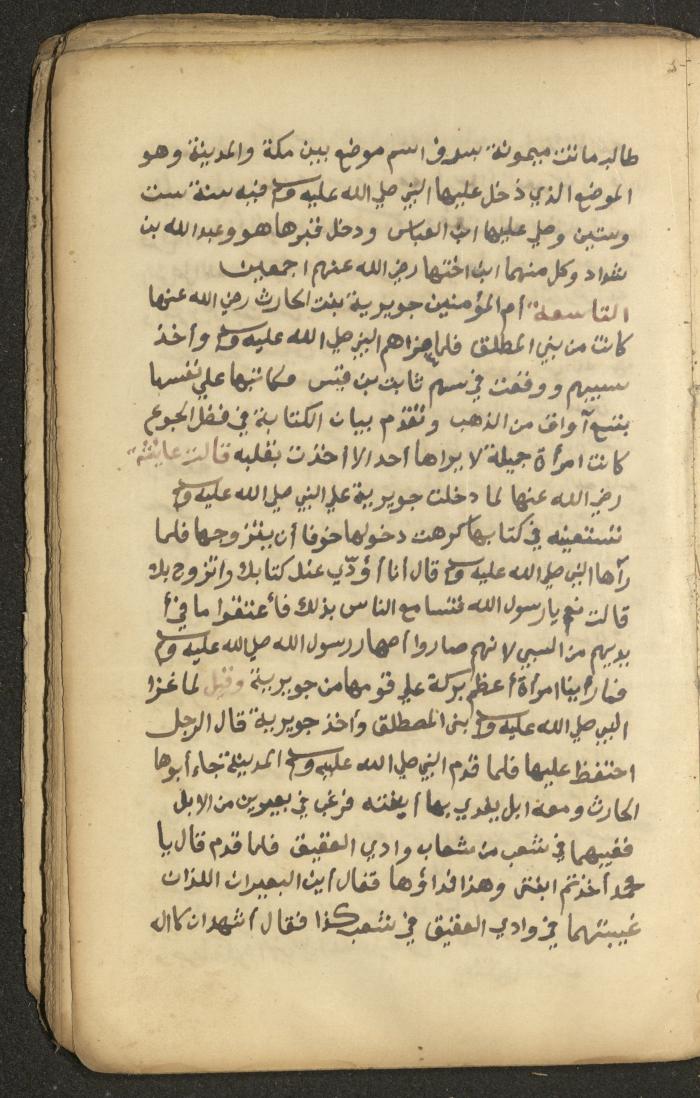 طالب ماتت ميمونة بسرف اسم موضع بين مكة والمدينة وهو
الموضع الذي دخل عليها النبي صلي الله عليه وسلم فيه سنة ست
وستين وصلي عليها ابن العباس ودخل قبرها هو وعبد الله بن
شداد وكل منهما ابن اختها رضي الله عنهم اجمعين
التاسعة أم المؤمنين جويرية بنت الحارث رضي الله عنها
كانت من بني المطلق فلما غزاهم النبي صلي الله عليه وسلم وأخذ
سبيهم ووقعت في سهم ثابت بن قيس فكاتبها علي نفسها
بتسع آواق من الذهب وتقدم بيان الكتابة في فضل الجوع
كانت امرأة جميلة لا يراها أحد الا اخذت بقلبه قالت عايشة
رضي الله عنها لما دخلت جويرية علي النبي صلي الله عليه وسلم
تستعينه في كتابها كرهت دخولها خوفا أن يتزوجها فلما
رآها النبي صلي الله عليه وسلم قال أنا أؤدّي عنك كتابك واتزوج بك
قالت نعم يا رسول الله فتسامع الناس بذلك فأعتقوا ما في أ
يديهم من السبي لانهم صاروا أصهار رسول الله صلي الله عليه وسلم
فما رأينا امرأة أعظم بركة علي قومها من جويرية وقيل لما غزا
النبي صلي الله عليه وسلم بني المصطلق وأخذ جويرية قال الرجل
احتفظ عليها فلما قدم النبي صلي الله عليه وسلم المدينة جاء أبوها
الحارث ومعه ابل يفدي بها ابنته فرغب في بعيرين من الابل
فغيبهما في شعب من شعاب وادي العقيق فلما قدم قال يا
محمد أخذتم ابنتي وهذا فداؤها فقال أين البعيران اللذان
غيبتهما في وادي العقيق في شعب كذا فقال أشهد ان لا اله